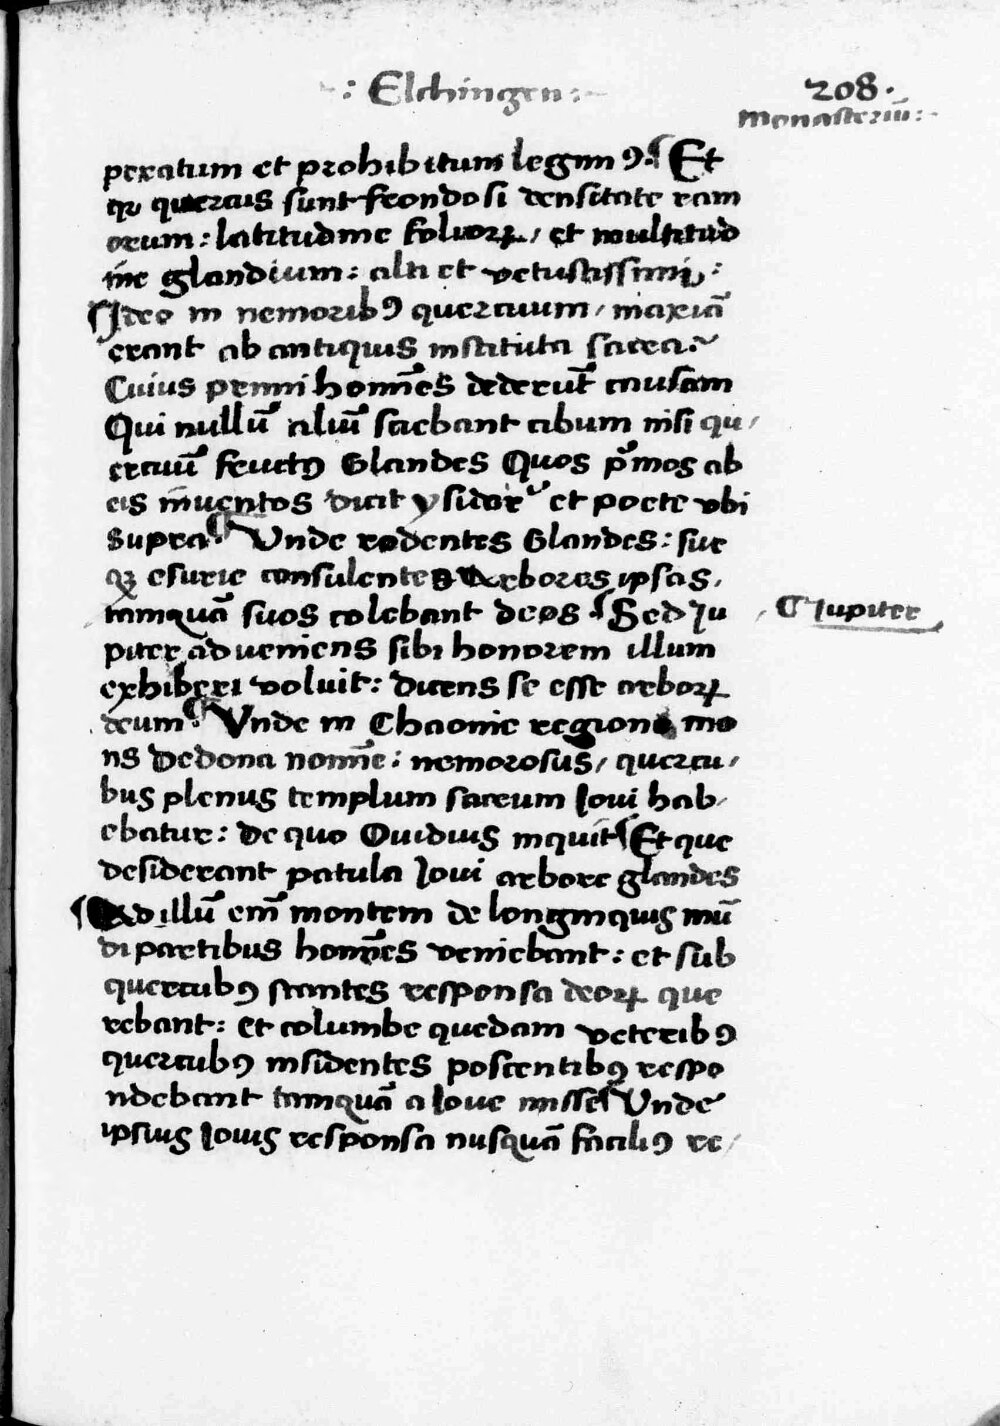 ·: Elchingen :~
208.
monasteriū :~
peratum et prohibitum legimꝰ. ¶ Et
qꝛ quercus sunt frondosi densitate ram
orum : latitudine folioꝝ / et multitud
īe glandium : alti et vetustissimi :
¶ Ideo in nemoribꝰ quercuum / maxiā
erant ab antiquis instituta sacra.~
Cuius primi homīes dederūt causam
Qui nullū aliū sciebant cibum nisi qu/
ercuū fructꝰ Glandes Quos pͥmos ab
eis īnuentos dicit ysidorꝰ et poete vbi
Supra. ¶ Vnde rodentes Glandes : sue
qꝫ esurie consulentes Arbores ipsas,
tamquā suos colebant deos ¶ Sed Ju
¶ Jupiter
piter adueniens sibi honorem illum
exhiberi voluit : dicens se esse arboꝝ
deum. ¶ Vnde in Chaonie regione mo
ns Dedona nomīe : nemorosus, quercu/
bus plenus templum sacrum Joui hab/
ebatur : De quo Ouidius inquit ¶ Et que
desiderant patula Joui arbore glandes
¶ Ad illū em̄ montem de longinquis mū
di partibus homīes veniebant : et sub
quercubꝰ stantes responsa deoꝝ que
rebant : et columbe quedam veteribꝰ
quercubꝰ insidentes poscentibꝰ respo
ndebant tamquā a Joue misse ¶ Vnde
ipsius Jouis responsa nusquā faciliꝰ re/